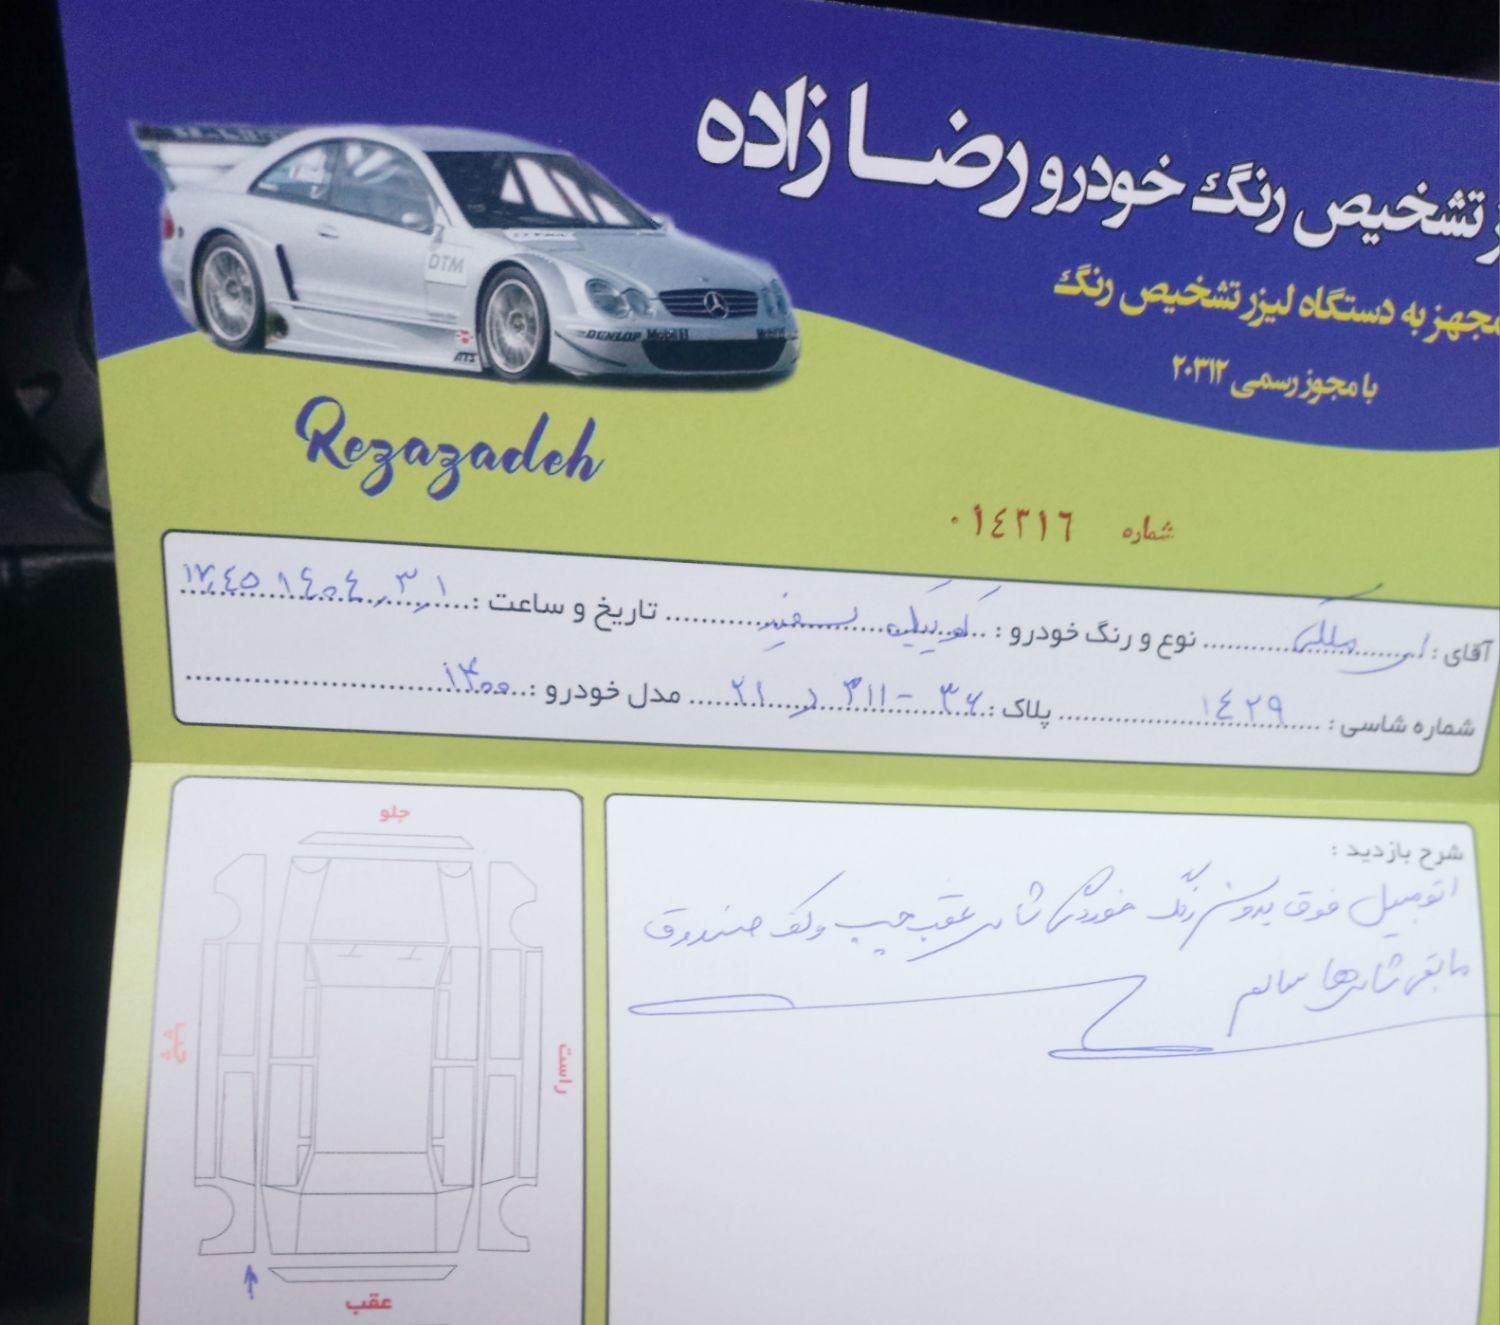 تشخیص رنگ خودرو رضا زاده
مجهز به دستگاه لیزر تشخیص رنگ
با مجوز رسمی ۲۰۳۱۲
DTM
DUNLOP Mobil 1
ATS
Rezazadeh
شماره ۰۱٤۳۱٦
آقای : نوع و رنگ خودرو : کوییک سفید تاریخ و ساعت : ۱۴۰۴٫۳٫۱ ۱۷٫۴۵
شماره شاسی : ۱۴۲۹ پلاک : ۳۶ - ۳۱۱ د ۲۱ مدل خودرو : ۱۴۰۰
شرح بازدید :
اتومبیل فوق بدون رنگ خوردگی شاسی عقب چپ و کف صندوق
مابقی شاسی‌ها سالم
جلو
چپ
راست
عقب